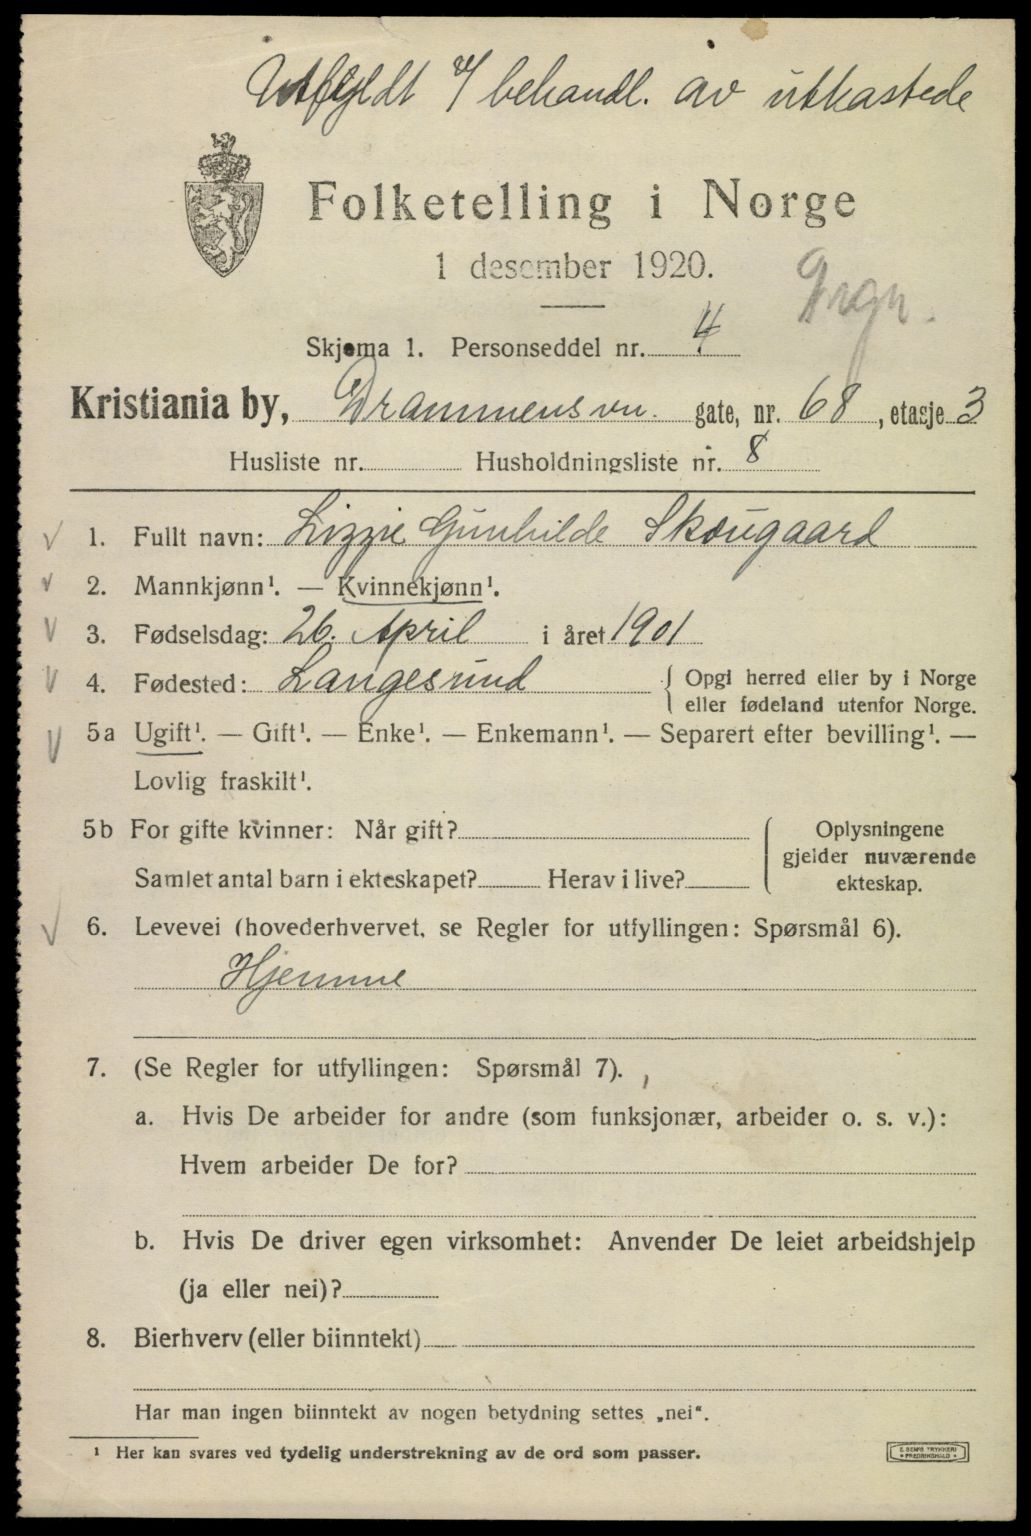 Utfyldt v/ behandl. av utkastede
Folketelling i Norge
1 desember 1920.
Skjema 1. Personseddel nr. 4
Kristiania by, Drammensvn. gate, nr. 68, etasje 3
Husliste nr. Husholdningsliste nr. 8
1. Fullt navn: Lizzie Gunhilde Skougaard
2. Mannkjønn¹. — Kvinnekjønn¹.
3. Fødselsdag: 26. April i året 1901
4. Fødested: Langesund { Opgi herred eller by i Norge
eller fødeland utenfor Norge.
5a Ugift¹. — Gift¹. — Enke¹. — Enkemann¹. — Separert efter bevilling¹. —
Lovlig fraskilt¹.
5b For gifte kvinner: Når gift?
Samlet antal barn i ekteskapet? Herav i live?
Oplysningene
gjelder nuværende
ekteskap.
6. Levevei (hovederhvervet, se Regler for utfyllingen: Spørsmål 6).
Hjemme
7. (Se Regler for utfyllingen: Spørsmål 7).
a. Hvis De arbeider for andre (som funksjonær, arbeider o. s. v.):
Hvem arbeider De for?
b. Hvis De driver egen virksomhet: Anvender De leiet arbeidshjelp
(ja eller nei)?
8. Bierhverv (eller biinntekt)
Har man ingen biinntekt av nogen betydning settes „nei“.
¹ Her kan svares ved tydelig understrekning av de ord som passer.
E. SEMS TRYKKERI
FREDRIKSHALD